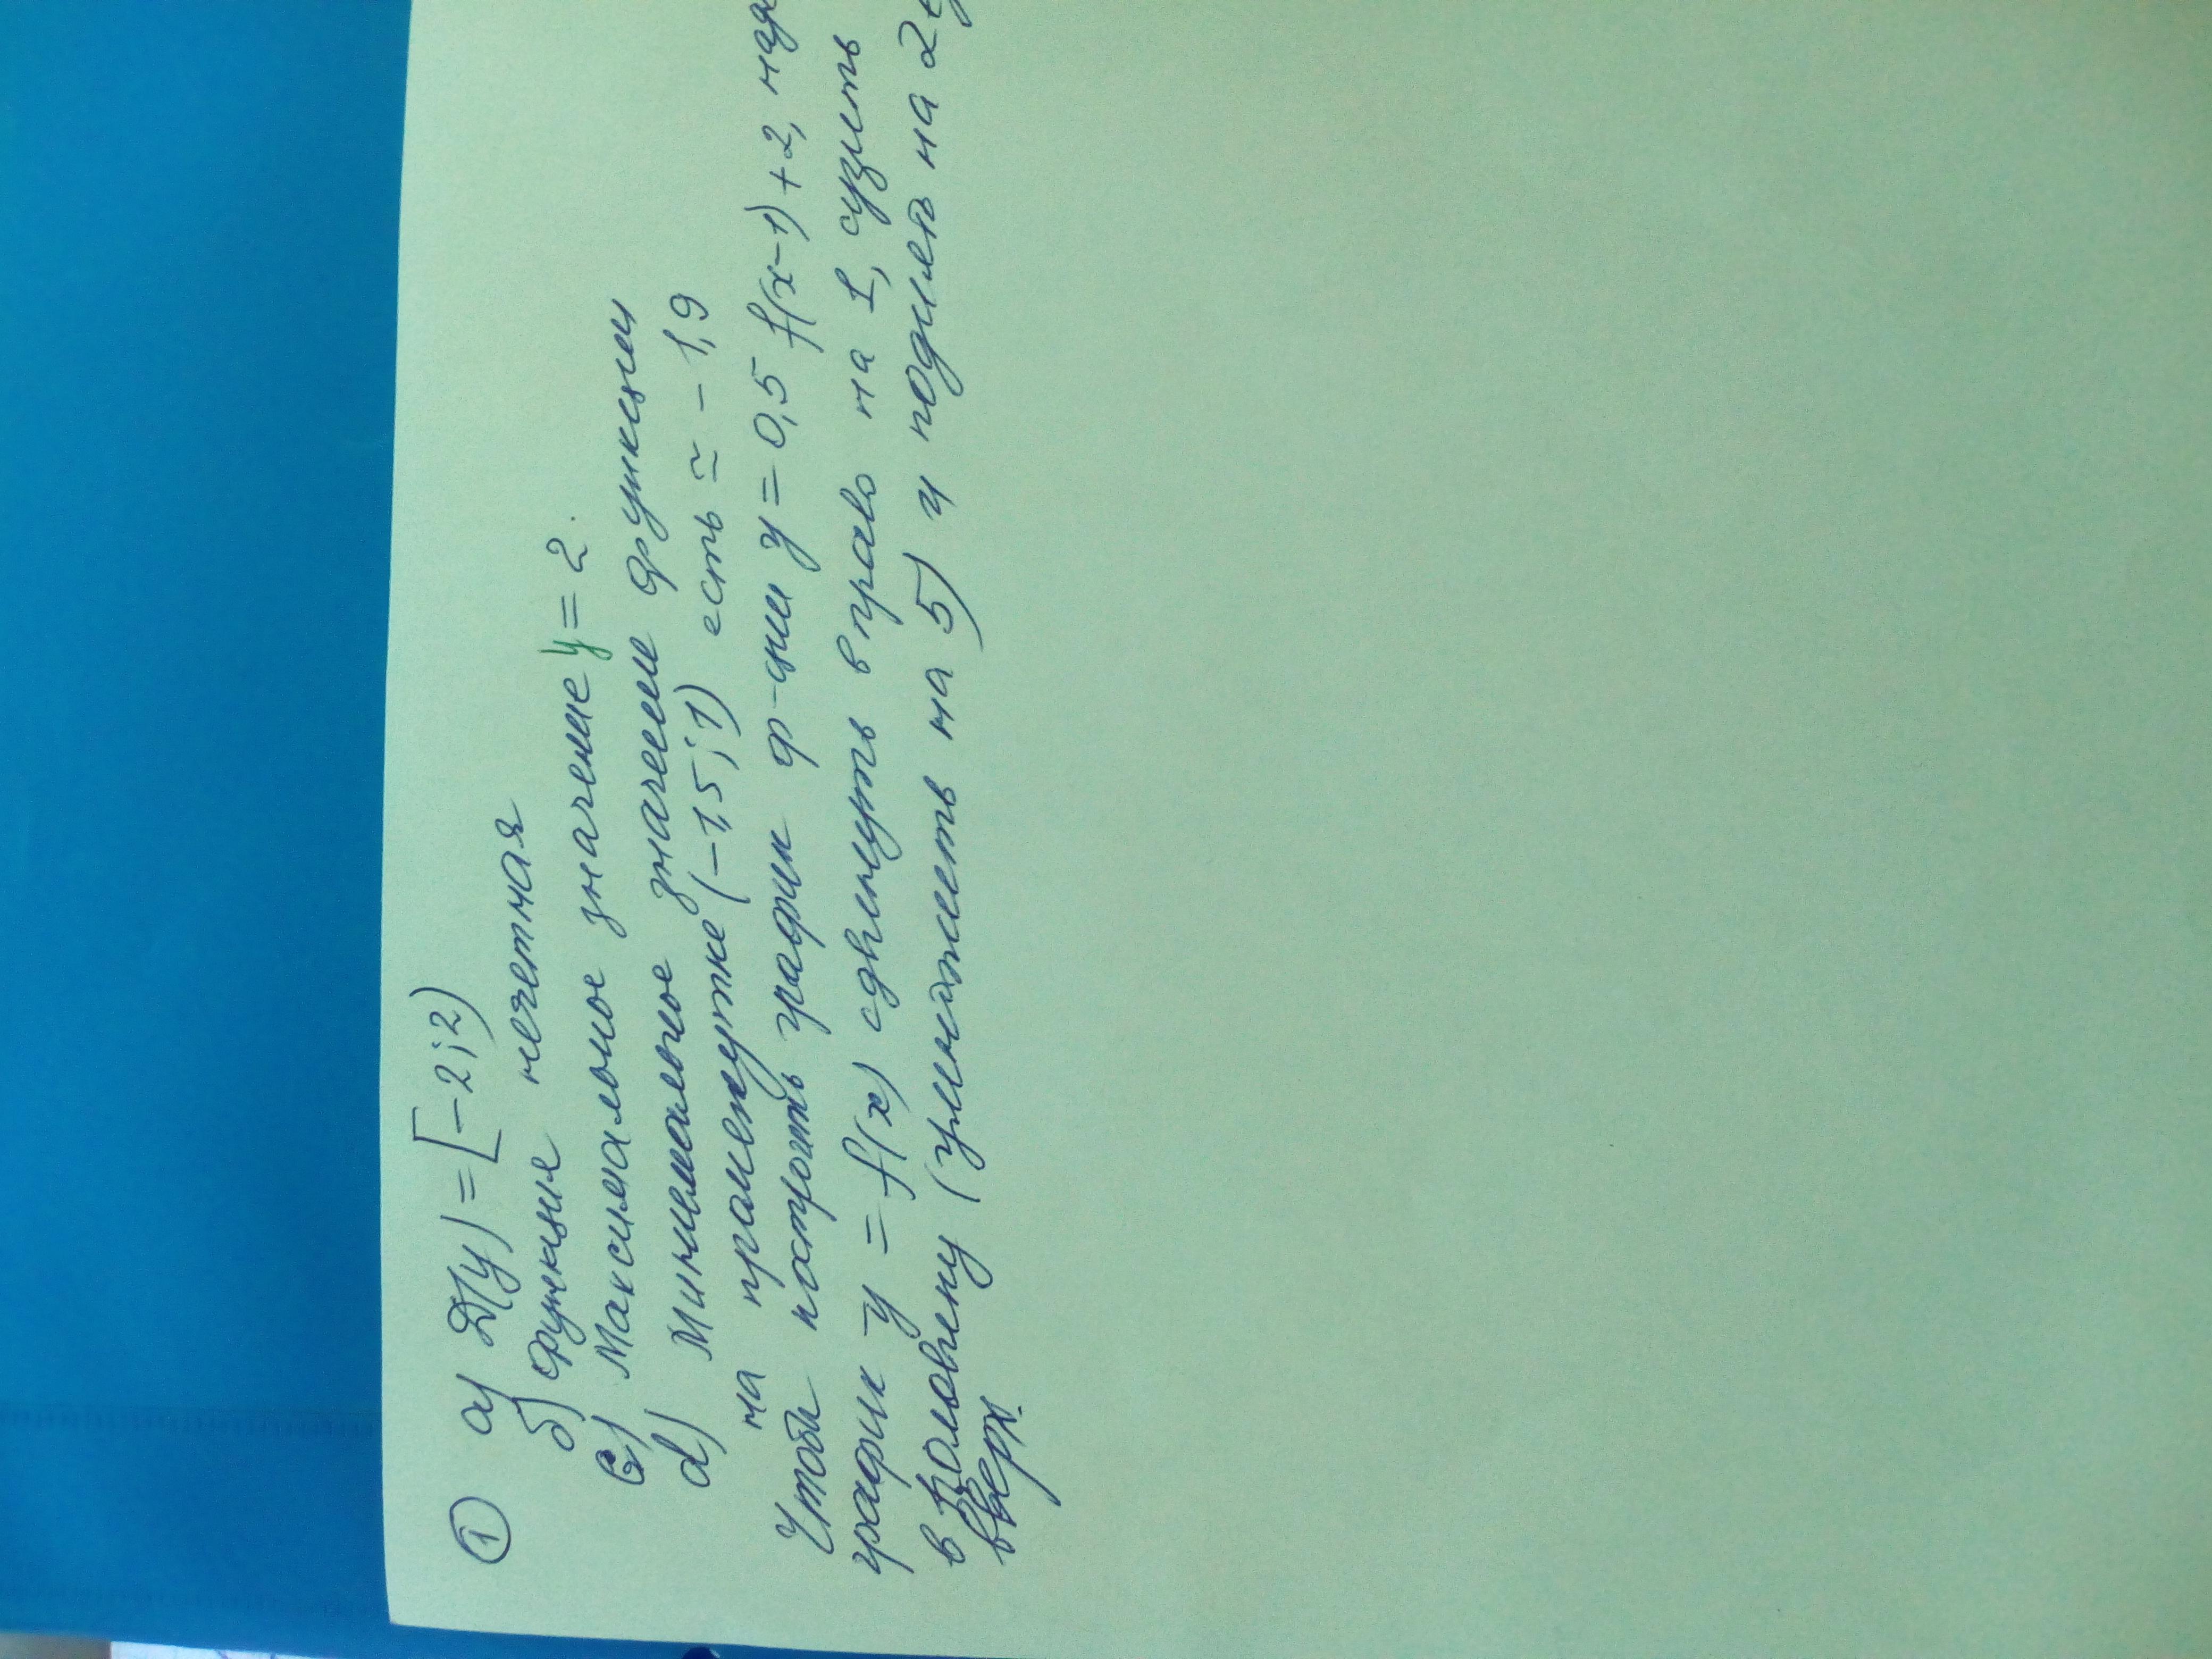 ① а) D(y) = [-2; 2)
б) Функция нечетная
с) Максимальное значение y = 2.
d) Минимальное значение функции
на промежутке (-1,5; 1) есть ≃ -1,9
Чтобы построить график ф-ции y = 0,5 f(x-1) + 2, надо
график y = f(x) сдвинуть вправо на 1, сузить
в половину (умножить на 5) и поднять на 2
вверх.